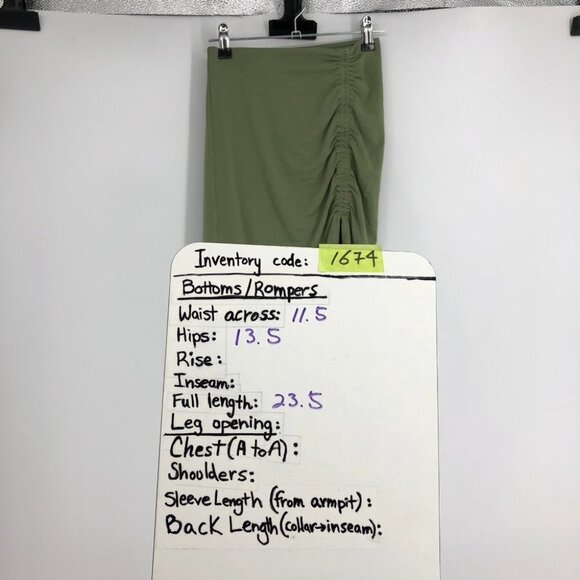 Inventory code: 1674
Bottoms/Rompers
Waist across: 11.5
Hips: 13.5
Rise:
Inseam:
Full length: 23.5
Leg opening:
Chest (A to A):
Shoulders:
Sleeve Length (from armpit):
Back Length (collar→inseam):